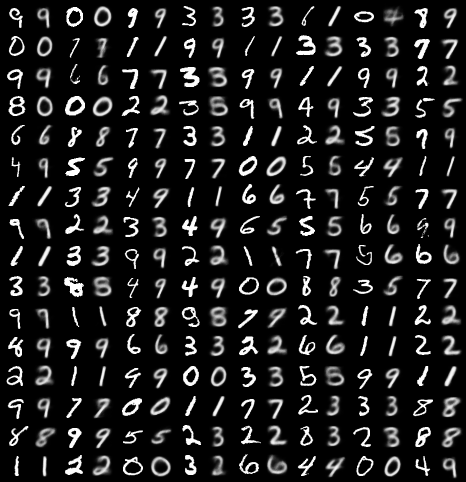 9 9 0 0 9 9 3 3 3 3 6 1 0 4 8 9
0 0 7 7 1 1 9 9 1 1 3 3 3 3 7 7
9 9 6 6 7 7 3 3 9 9 1 1 9 9 2 2
8 0 0 0 2 2 3 5 9 9 4 9 3 3 5 5
6 6 8 8 7 7 3 3 1 1 2 2 5 5 9 9
4 9 5 5 9 9 7 7 0 0 5 5 4 4 1 1
1 1 3 3 4 9 1 1 6 6 7 7 5 5 7 7
9 9 2 2 3 3 4 9 6 5 5 5 6 6 9 9
1 1 3 3 9 9 2 2 1 1 7 7 5 6 6 6
3 3 8 5 4 9 4 9 0 0 8 8 3 5 7 7
9 9 1 1 8 8 9 8 7 9 2 2 1 1 2 2
8 9 9 9 6 6 3 3 2 2 6 6 1 1 2 2
2 2 1 1 9 9 0 0 3 3 5 5 9 9 1 1
9 9 7 7 0 0 1 1 7 7 2 3 3 3 8 8
8 8 9 9 5 5 2 3 2 2 8 3 2 3 8 8
1 1 2 2 0 0 3 2 6 6 4 4 0 0 4 9